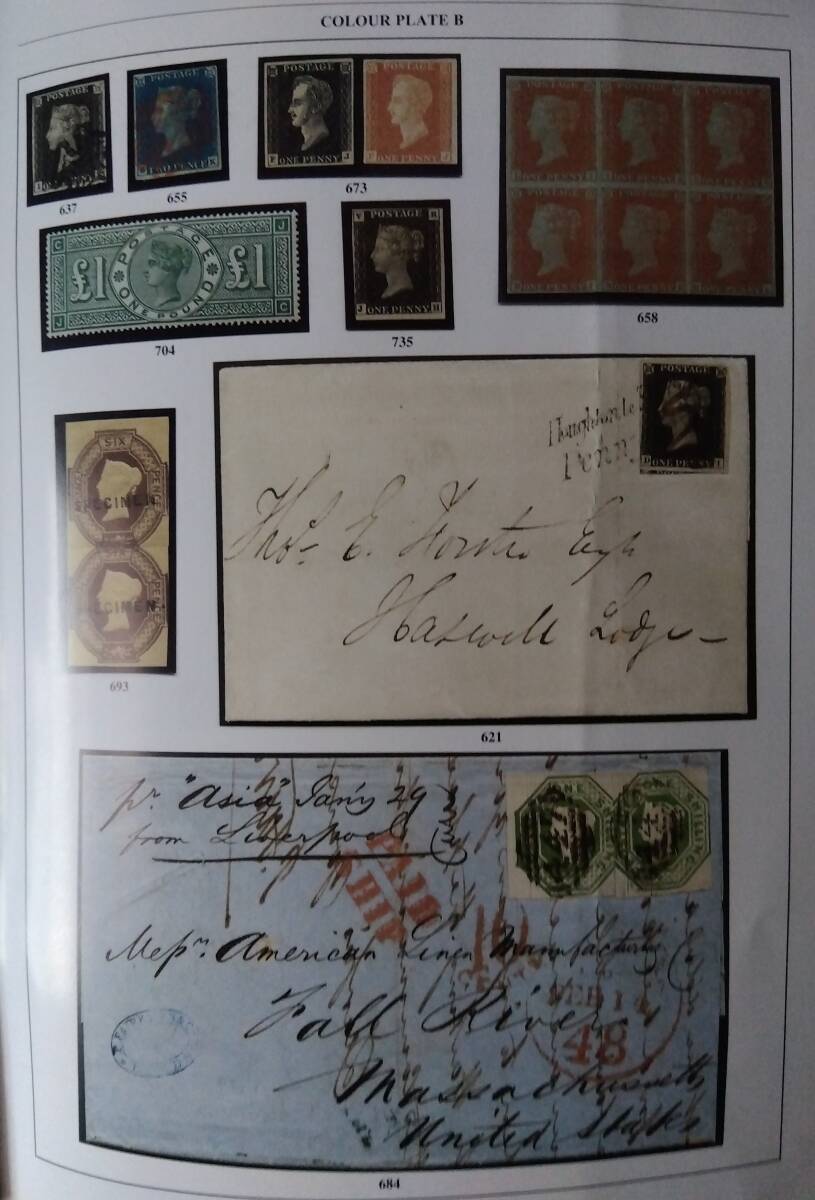 COLOUR PLATE B
POSTAGE
637
POSTAGE
TWO PENCE K
655
POSTAGE POSTAGE
F ONE PENNY J F ONE PENNY J
673
POSTAGE POSTAGE POSTAGE
POSTAGE POSTAGE POSTAGE
658
C J
POSTAGE
£1 £1
ONE POUND
J C
704
V POSTAGE R
J ONE PENNY H
735
SIX
PENCE
SPECIMEN
PENCE
SPECIMEN
693
POSTAGE
D ONE PENNY I
Houghton le
Penny
Thos. E. Forster Esqr
Haswell Lodge
621
pr. "Asia" Jany 29
from Liverpool
ONE SHILLING
ONE SHILLING
PAID
SHIP
Messrs. American Linen Manufacturing
Fall River
FEB 14
48
Massachusetts
United States
684